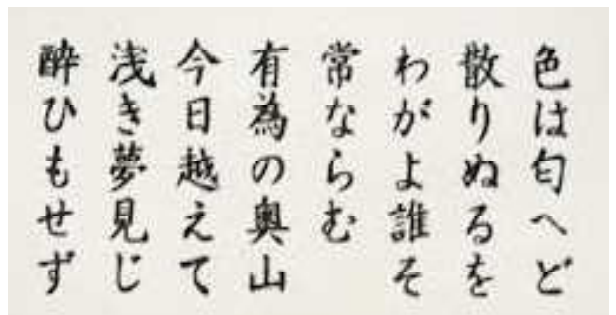 色は匂へど
散りぬるを
わがよ誰そ
常ならむ
有為の奥山
今日越えて
浅き夢見じ
酔ひもせず